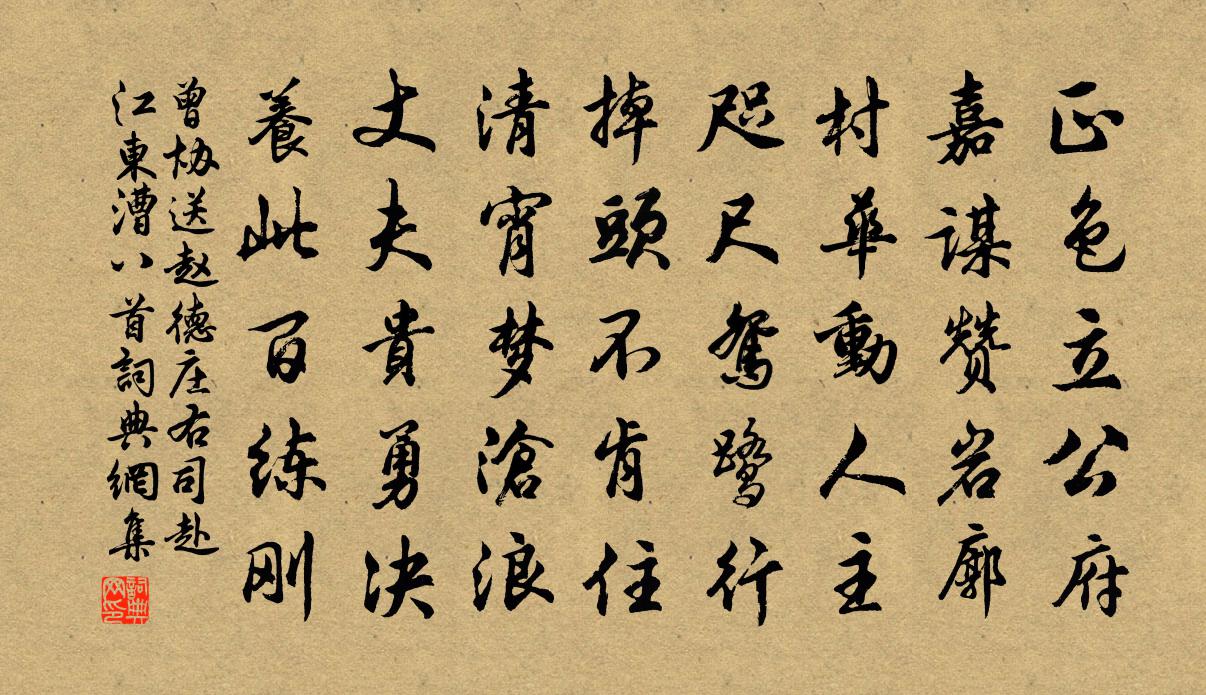 正色立公府
嘉謀赞岩廊
村華動人主
咫尺鴛鹭行
掉頭不肯住
清宵梦滄浪
丈夫貴勇决
養此百练刚
曾协送赵德庄右司赴
江東漕八首詞典網集
詞典网印